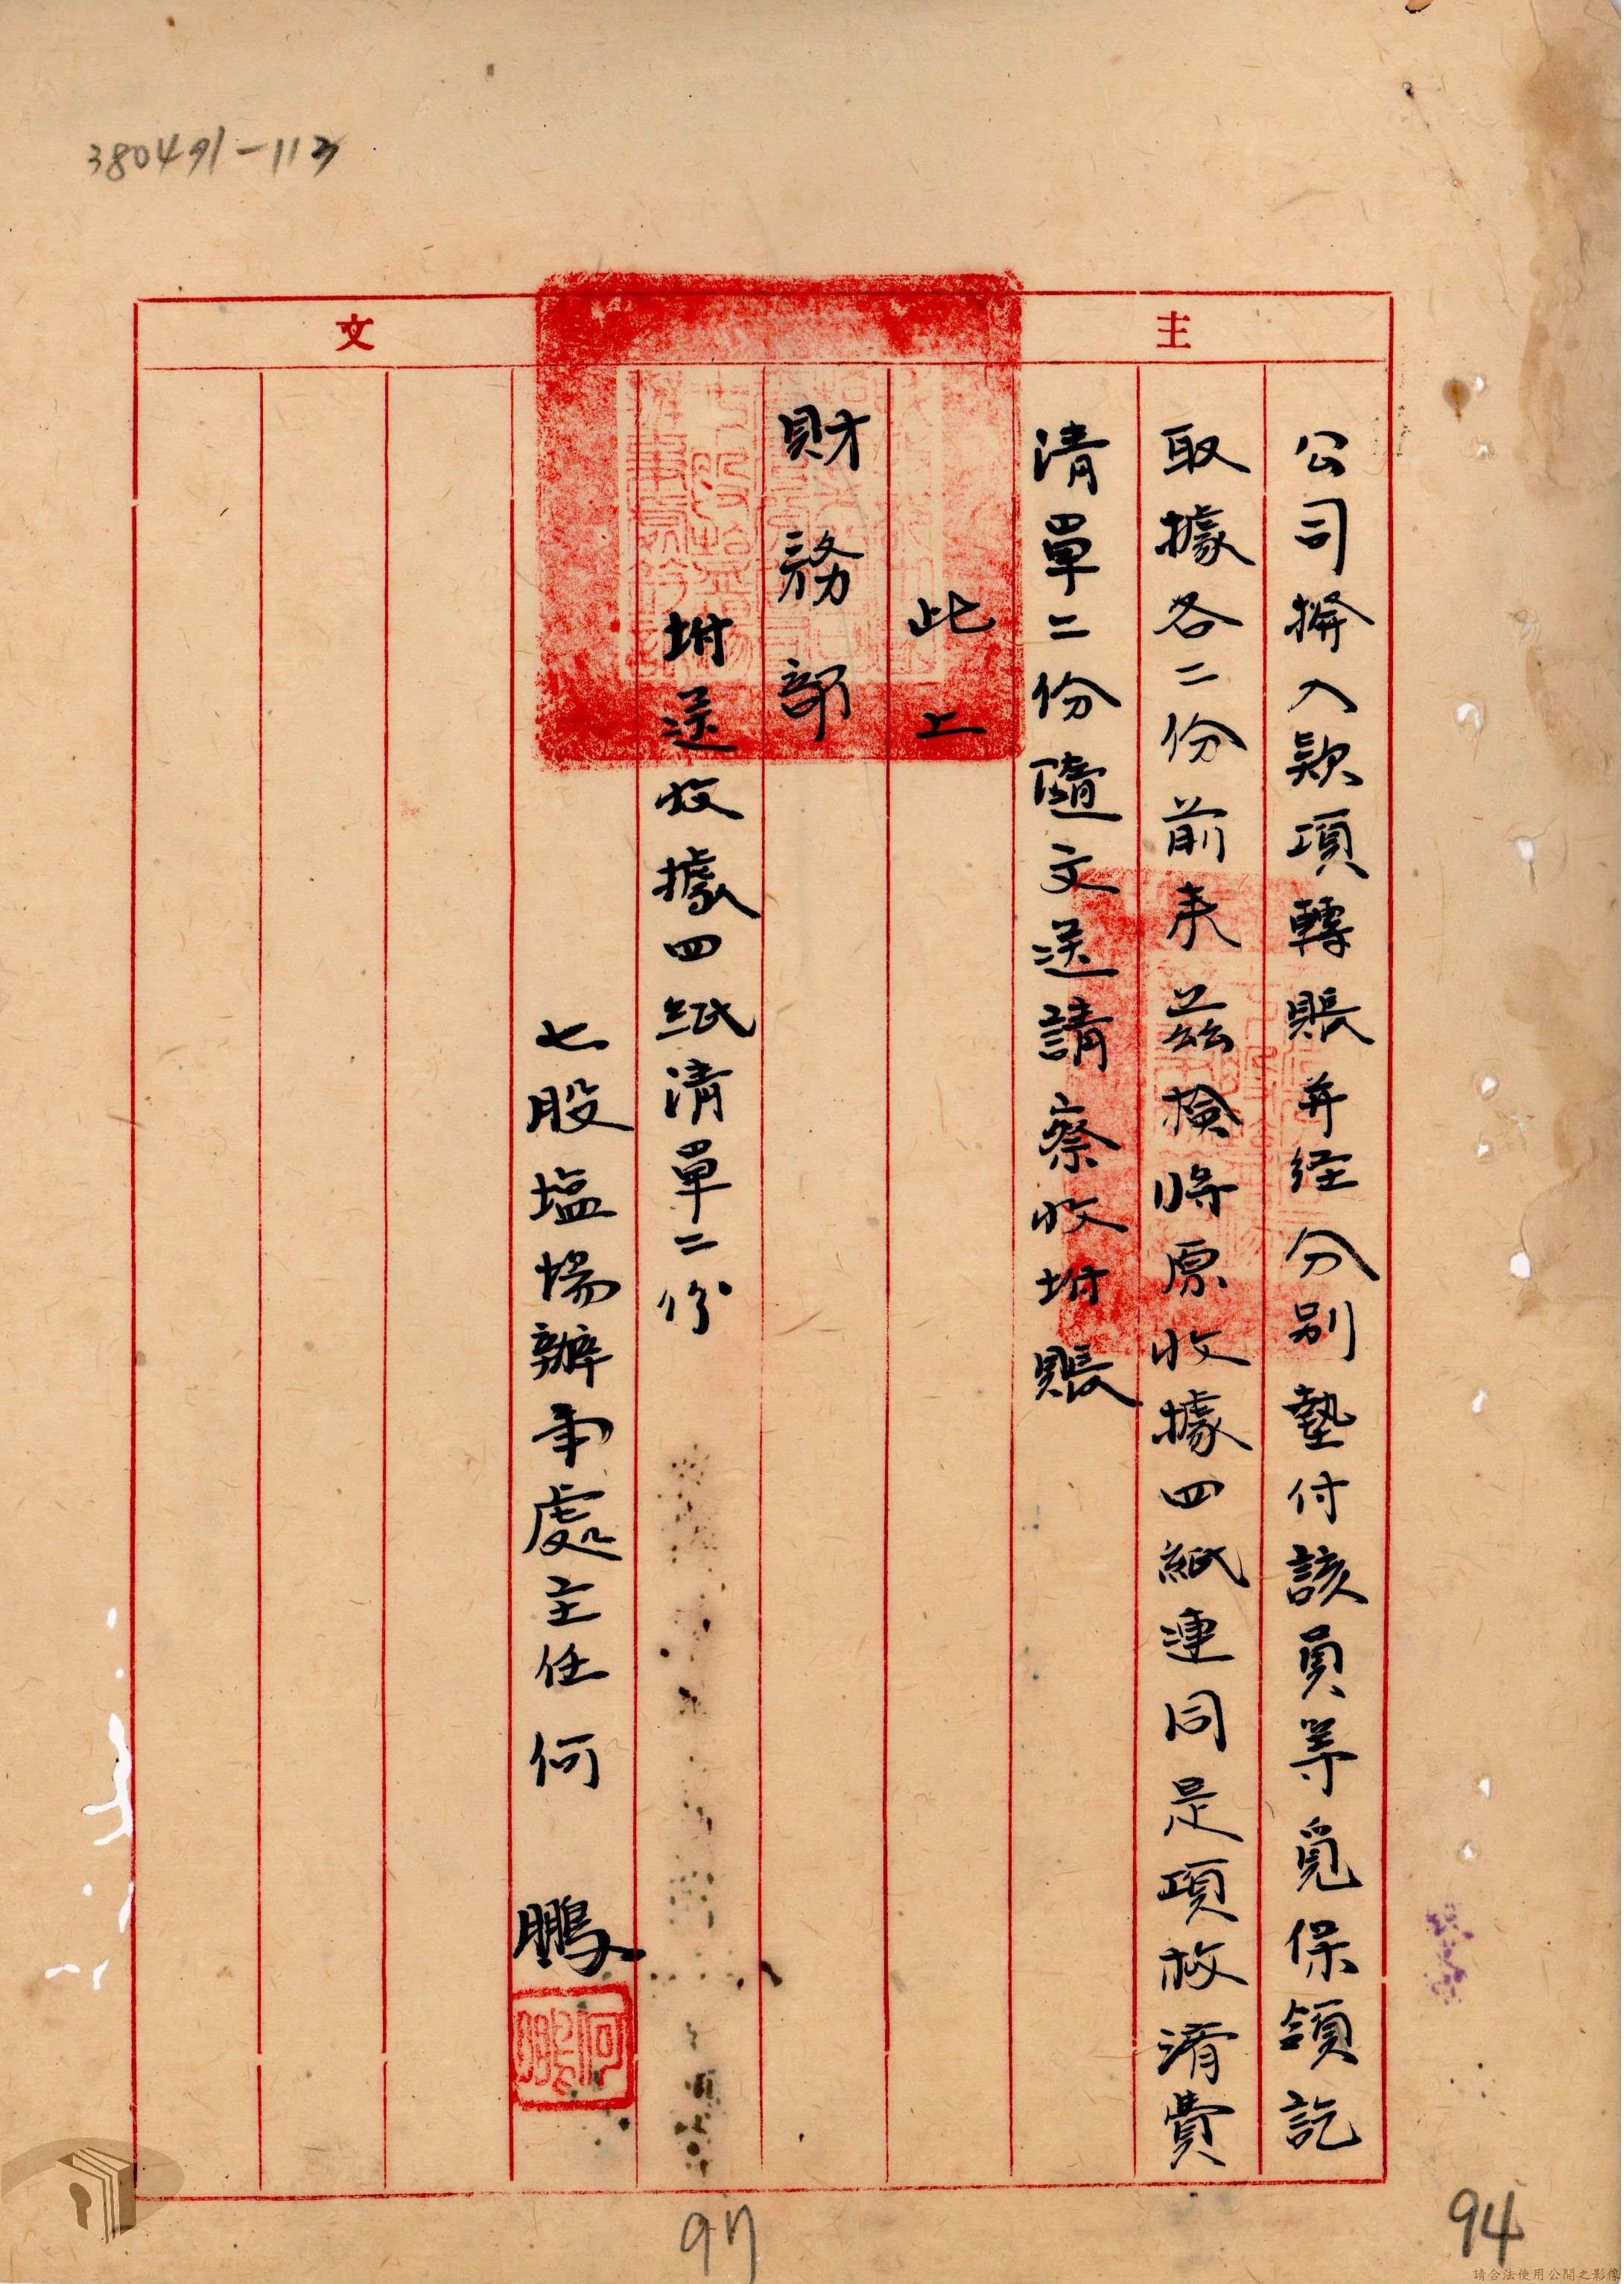 380491-113
主文
公司撥入款項轉賬并经分别墊付該員等覓保領訖
取據各二份前来茲檢將原收據四紙連同是項救濟費
清單二份隨文送請察收坿賬
此上
財務部
坿送收據四紙清單二份
七股塩場辦事處主任何鵬
何鵬
97
94
請合法使用公開之影像